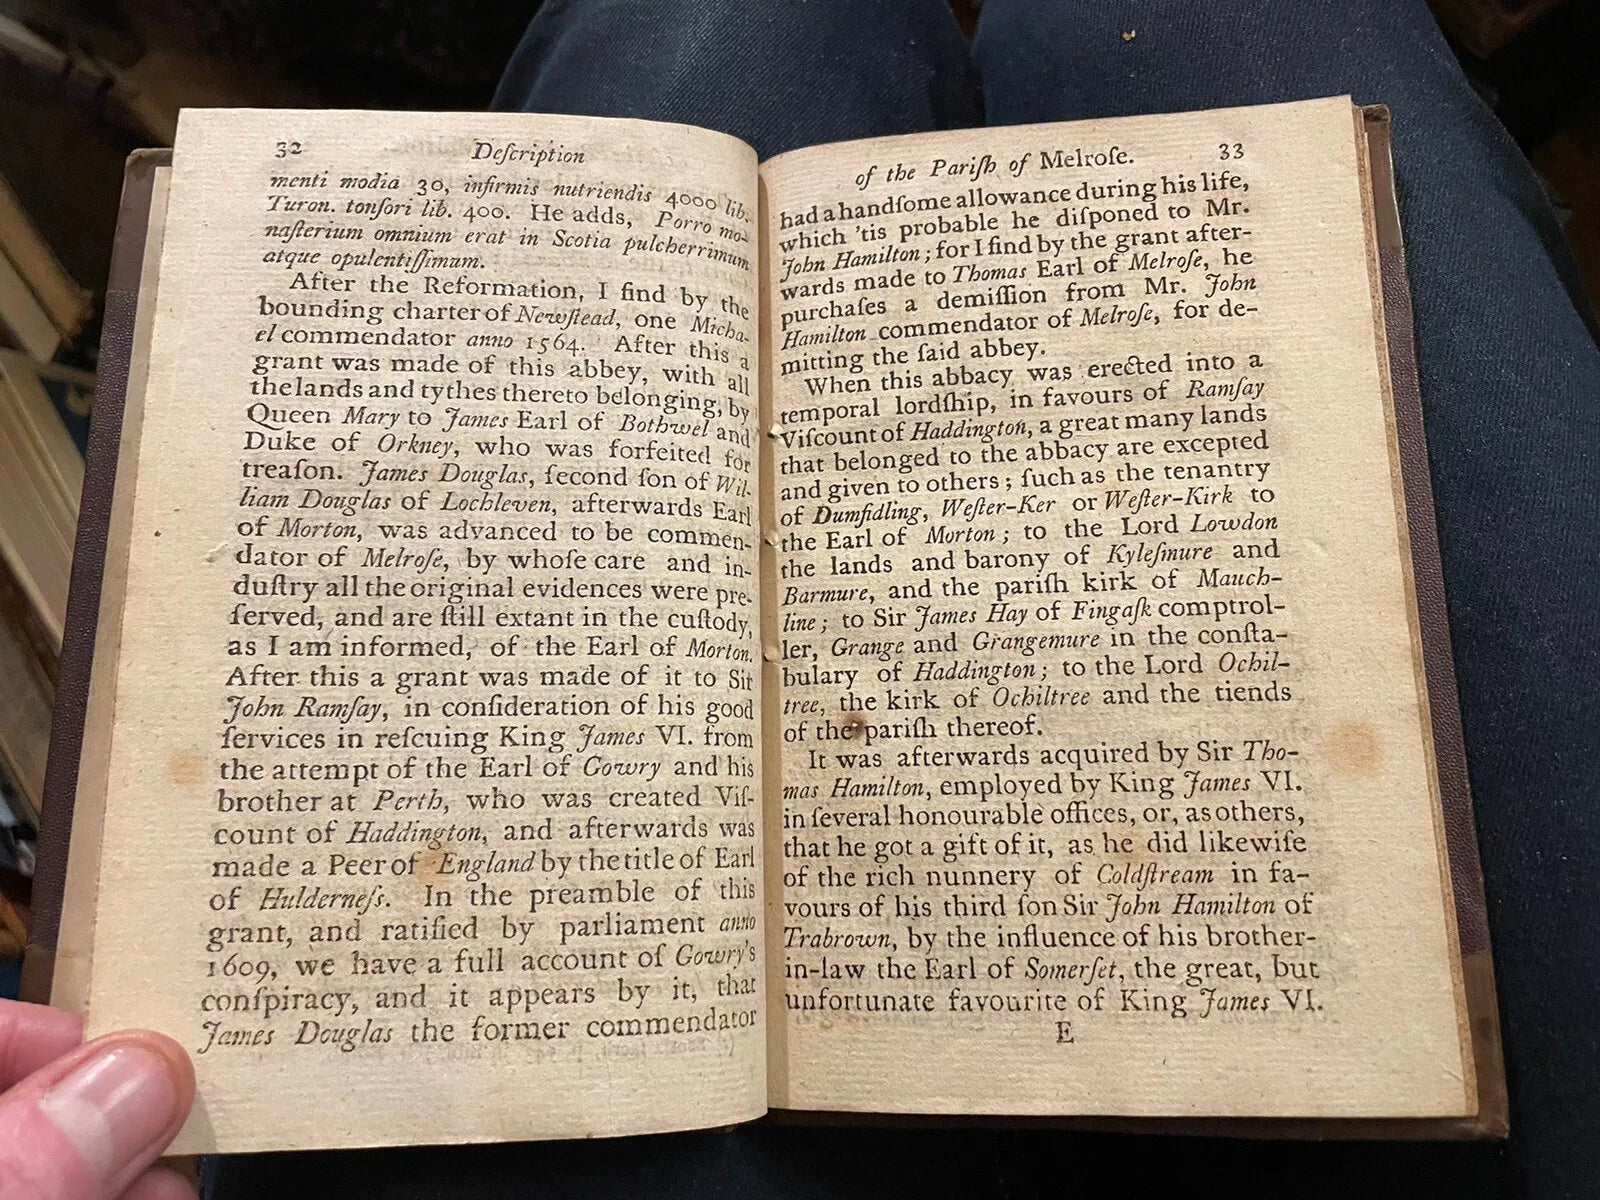 32 Deſcription
menti modia 30, infirmis nutriendis 4000 lib.
Turon. tonſori lib. 400. He adds, Porro mo-
naſterium omnium erat in Scotia pulcherrimum
atque opulentiſſimum.
After the Reformation, I find by the
bounding charter of Newſtead, one Micha-
el commendator anno 1564. After this a
grant was made of this abbey, with all
the lands and tythes thereto belonging, by
Queen Mary to James Earl of Bothwel and
Duke of Orkney, who was forfeited for
treaſon. James Douglas, ſecond ſon of Wil-
liam Douglas of Lochleven, afterwards Earl
of Morton, was advanced to be commen-
dator of Melroſe, by whoſe care and in-
duſtry all the original evidences were pre-
ſerved, and are ſtill extant in the cuſtody,
as I am informed, of the Earl of Morton.
After this a grant was made of it to Sir
John Ramſay, in conſideration of his good
ſervices in reſcuing King James VI. from
the attempt of the Earl of Gowry and his
brother at Perth, who was created Viſ-
count of Haddington, and afterwards was
made a Peer of England by the title of Earl
of Hulderneſs. In the preamble of this
grant, and ratified by parliament anno
1609, we have a full account of Gowry's
conſpiracy, and it appears by it, that
James Douglas the former commendator
of the Pariſh of Melroſe. 33
had a handſome allowance during his life,
which 'tis probable he diſponed to Mr.
John Hamilton; for I find by the grant after-
wards made to Thomas Earl of Melroſe, he
purchaſes a demiſſion from Mr. John
Hamilton commendator of Melroſe, for de-
mitting the ſaid abbey.
When this abbacy was erected into a
temporal lordſhip, in favours of Ramſay
Viſcount of Haddington, a great many lands
that belonged to the abbacy are excepted
and given to others; ſuch as the tenantry
of Dumfidling, Weſter-Ker or Weſter-Kirk to
the Earl of Morton; to the Lord Lowdon
the lands and barony of Kyleſmure and
Barmure, and the pariſh kirk of Mauch-
line; to Sir James Hay of Fingaſk comptrol-
ler, Grange and Grangemure in the conſta-
bulary of Haddington; to the Lord Ochil-
tree, the kirk of Ochiltree and the tiends
of the pariſh thereof.
It was afterwards acquired by Sir Tho-
mas Hamilton, employed by King James VI.
in ſeveral honourable offices, or, as others,
that he got a gift of it, as he did likewiſe
of the rich nunnery of Coldſtream in fa-
vours of his third ſon Sir John Hamilton of
Trabrown, by the influence of his brother-
in-law the Earl of Somerſet, the great, but
unfortunate favourite of King James VI.
E